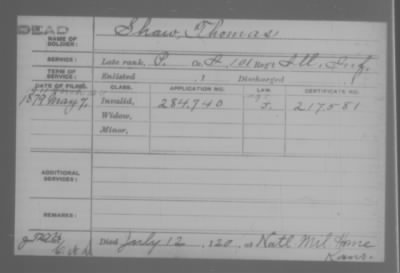 DEAD
NAME OF SOLDIER: Shaw, Thomas
SERVICE: Late rank, P. Co. A, 101 Reg't Ill. Inf.
TERM OF SERVICE: Enlisted , 1 Discharged
DATE OF FILING. CLASS. APPLICATION NO. LAW. CERTIFICATE NO.
1879 May 7. Invalid, 284,740 J. 217581
Widow,
Minor,
ADDITIONAL SERVICES:
REMARKS:
Died July 12, 1920, at Natl. Mil. Home
Kans.